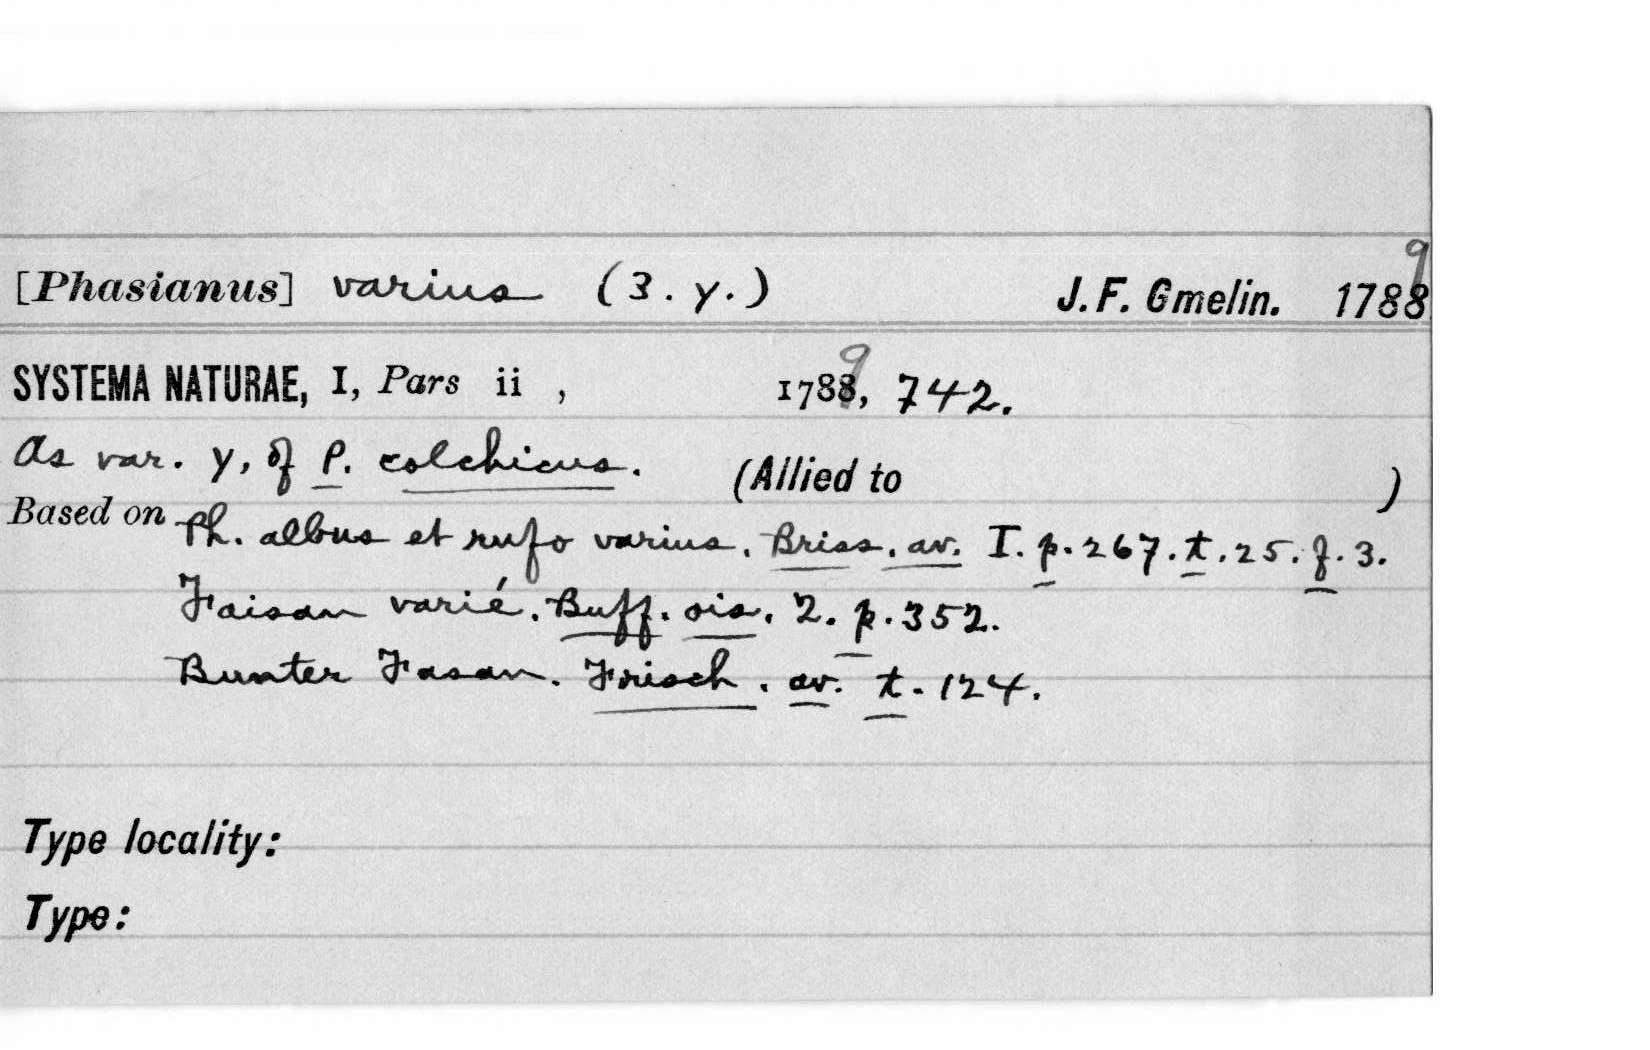 [Phasianus] varius (3. γ.) J. F. Gmelin. 1789
SYSTEMA NATURAE, I, Pars ii , 1789, 742.
As var. γ, of P. colchicus. (Allied to )
Based on Ph. albus et rufo varius. Briss. av. I. p. 267. t. 25. f. 3.
Faisan varié. Buff. ois. 2. p. 352.
Bunter Fasan. Frisch. av. t. 124.
Type locality:
Type: